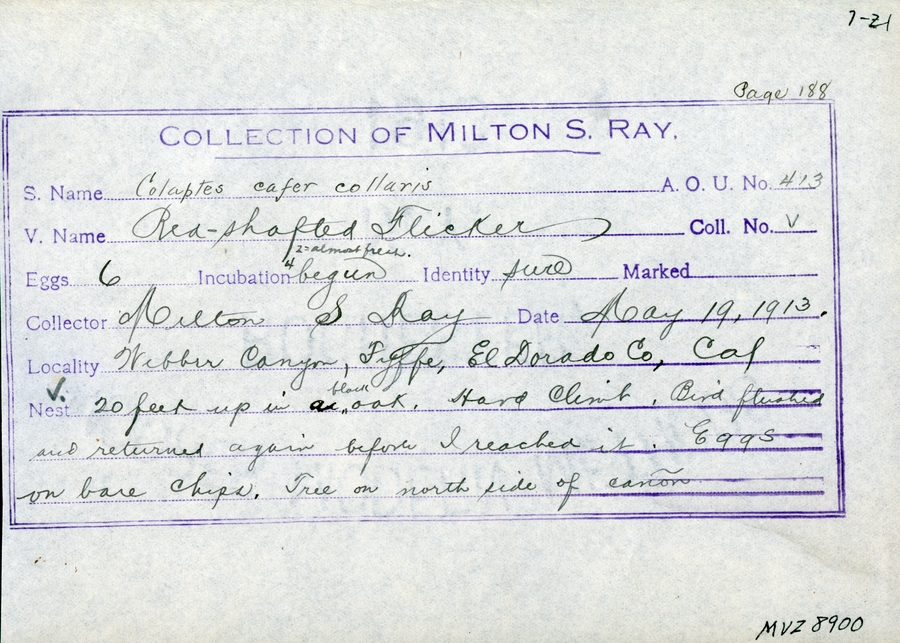 7-21
Page 188
COLLECTION OF MILTON S. RAY.
S. Name Colaptes cafer collaris A. O. U. No. 413
V. Name Red-shafted Flicker Coll. No. V
2=almost fresh.
Eggs 6 Incubation 4 begun Identity sure Marked
Collector Milton S Ray Date May 19, 1913.
Locality Webber Canyon, Fyffe, El Dorado Co, Cal
V.
black
Nest 20 feet up in a oak. Hard Climb. Bird flushed
and returned again before I reached it. Eggs
on bare chips. Tree on north side of cañon
MVZ 8900